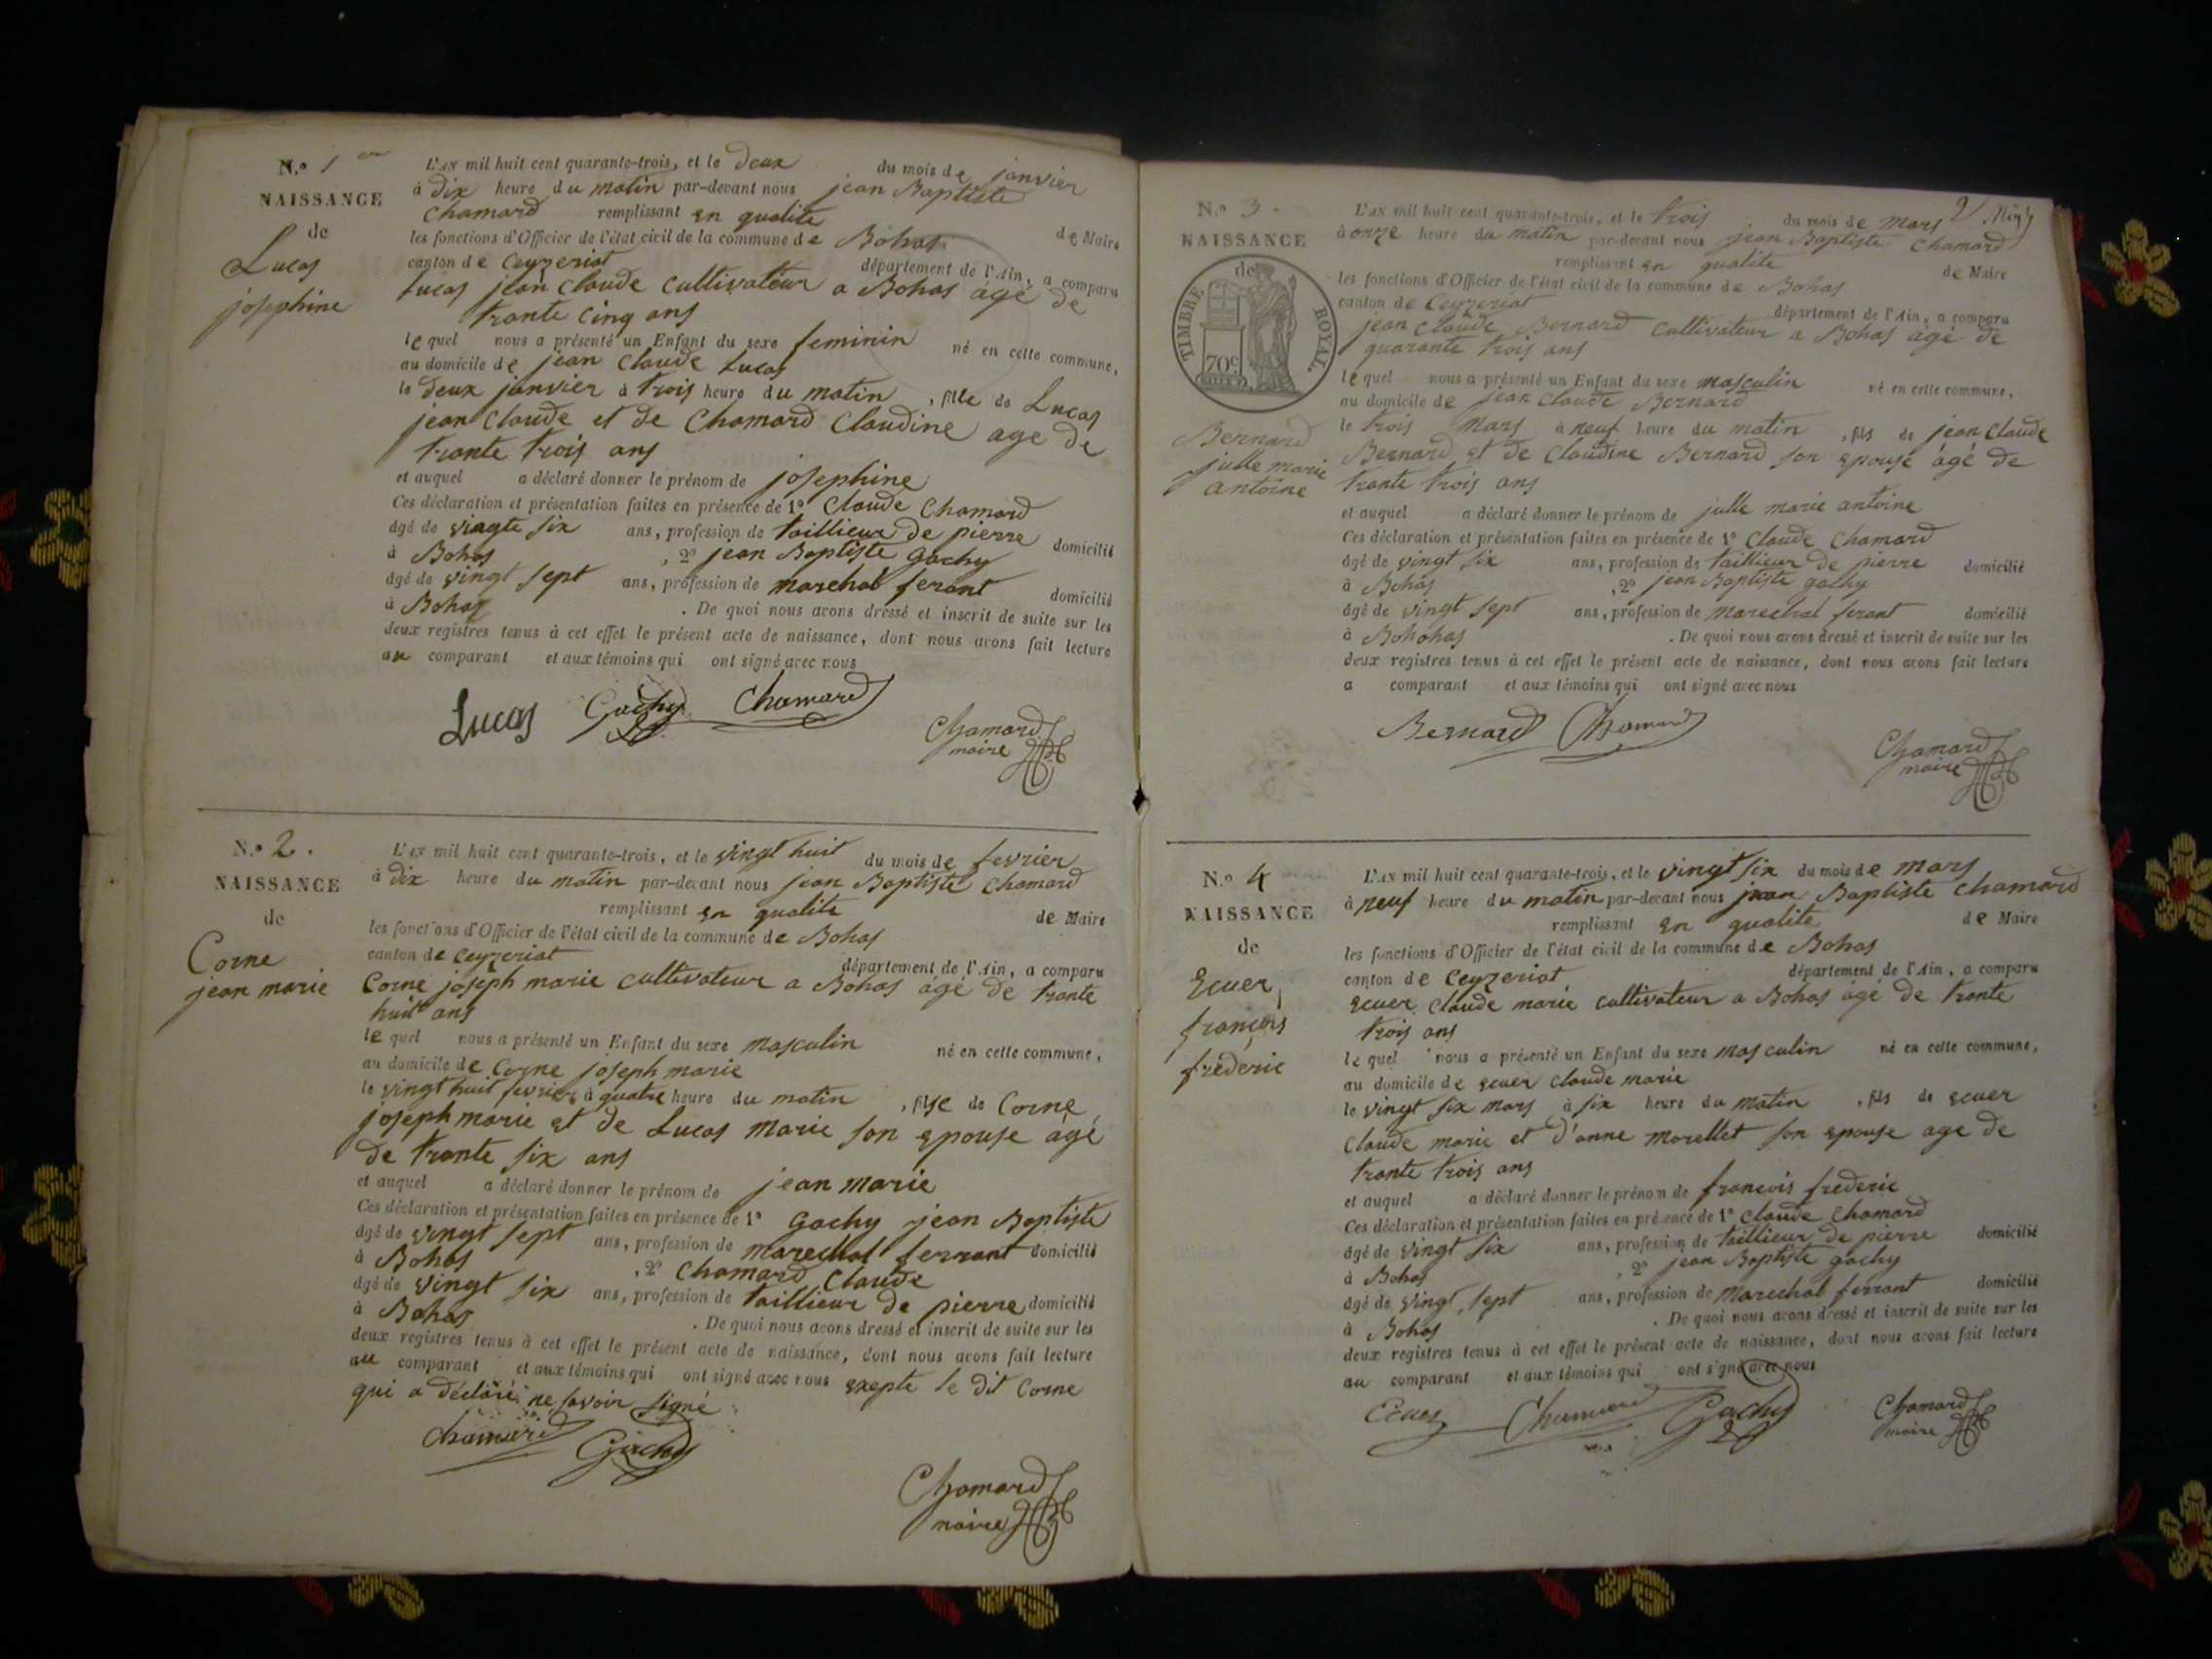 N.o 1er
NAISSANCE
de
Lucas
josephine
L'AN mil huit cent quarante-trois, et le deux du mois de janvier
à dix heure du matin par-devant nous jean Baptiste
Chamard remplissant en qualite de Maire
les fonctions d'Officier de l'état civil de la commune de Bohas
canton de Ceyzeriat département de l'Ain, a comparu
Lucas jean Claude cultivateur a Bohas agé de
trante cinq ans
le quel nous a présenté un Enfant du sexe feminin né en cette commune,
au domicile de jean Claude Lucas
le deux janvier à trois heure du matin , fille de Lucas
jean Claude et de Chamard Claudine age de
trante trois ans
et auquel a déclaré donner le prénom de josephine
Ces déclaration et présentation faites en présence de 1o Claude Chamard
âgé de vingte six ans, profession de taillieur de pierre domicilié
à Bohas , 2o jean Baptiste Gachy
âgé de vingt sept ans, profession de marechal ferant domicilié
à Bohas . De quoi nous avons dressé et inscrit de suite sur les
deux registres tenus à cet effet le présent acte de naissance, dont nous avons fait lecture
au comparant et aux témoins qui ont signé avec nous
Lucas Gachy Chamard
Chamard
maire
N.o 2.
NAISSANCE
de
Corne
jean marie
L'AN mil huit cent quarante-trois, et le vingt huit du mois de fevrier
à dix heure du matin par-devant nous jean Baptiste Chamard
remplissant en qualite de Maire
les fonctions d'Officier de l'état civil de la commune de Bohas
canton de Ceyzeriat département de l'Ain, a comparu
Corne joseph marie cultivateur a Bohas agé de trante
huit ans
le quel nous a présenté un Enfant du sexe masculin né en cette commune,
au domicile de Corne joseph marie
le vingt huit fevrier à quatre heure du matin , fils de Corne
joseph marie et de Lucas marie son epouse agé
de trante six ans
et auquel a déclaré donner le prénom de jean marie
Ces déclaration et présentation faites en présence de 1o Gachy jean Baptiste
âgé de vingt sept ans, profession de marechal ferrant domicilié
à Bohas , 2o Chamard Claude
âgé de vingt six ans, profession de taillieur de pierre domicilié
à Bohas . De quoi nous avons dressé et inscrit de suite sur les
deux registres tenus à cet effet le présent acte de naissance, dont nous avons fait lecture
au comparant et aux témoins qui ont signé avec nous exepte le dit Corne
qui a déclaré ne savoir signé
Chamard Gachy
Chamard
maire
2
N.o 3.
NAISSANCE
de
TIMBRE ROYAL.
70c
Bernard
julle marie
antoine
L'AN mil huit cent quarante-trois, et le trois du mois de mars
à onze heure du matin par-devant nous jean Baptiste Chamard
remplissant en qualite de Maire
les fonctions d'Officier de l'état civil de la commune de Bohas
canton de Ceyzeriat département de l'Ain, a comparu
jean Claude Bernard cultivateur a Bohas agé de
quarante trois ans
le quel nous a présenté un Enfant du sexe masculin né en cette commune,
au domicile de jean Claude Bernard
le trois mars à neuf heure du matin , fils de jean Claude
Bernard et de Claudine Bernard son epouse agé de
trante trois ans
et auquel a déclaré donner le prénom de julle marie antoine
Ces déclaration et présentation faites en présence de 1o Claude Chamard
âgé de vingt six ans, profession de taillieur de pierre domicilié
à Bohas , 2o jean Baptiste gachy
âgé de vingt sept ans, profession de marechal ferant domicilié
à Bohohas . De quoi nous avons dressé et inscrit de suite sur les
deux registres tenus à cet effet le présent acte de naissance, dont nous avons fait lecture
a comparant et aux témoins qui ont signé avec nous
Bernard Chamard
Chamard
maire
N.o 4
NAISSANCE
de
Ecuer
françois
frederic
L'AN mil huit cent quarante-trois, et le vingt six du mois de mars
à neuf heure du matin par-devant nous jean Baptiste Chamard
remplissant en qualite de Maire
les fonctions d'Officier de l'état civil de la commune de Bohas
canton de Ceyzeriat département de l'Ain, a comparu
ecuer Claude marie cultivateur a Bohas agé de trante
trois ans
le quel nous a présenté un Enfant du sexe masculin né en cette commune,
au domicile de ecuer Claude marie
le vingt six mars à six heure du matin , fils de ecuer
Claude marie et d'anne morellet son epouse age de
trante trois ans
et auquel a déclaré donner le prénom de françois frederic
Ces déclaration et présentation faites en présence de 1o Claude Chamard
âgé de vingt six ans, profession de taillieur de pierre domicilié
à Bohas , 2o jean Baptiste gachy
âgé de vingt sept ans, profession de marechal ferrant domicilié
à Bohas . De quoi nous avons dressé et inscrit de suite sur les
deux registres tenus à cet effet le présent acte de naissance, dont nous avons fait lecture
au comparant et aux témoins qui ont signé avec nous
Ecuer Chamard Gachy
Chamard
maire